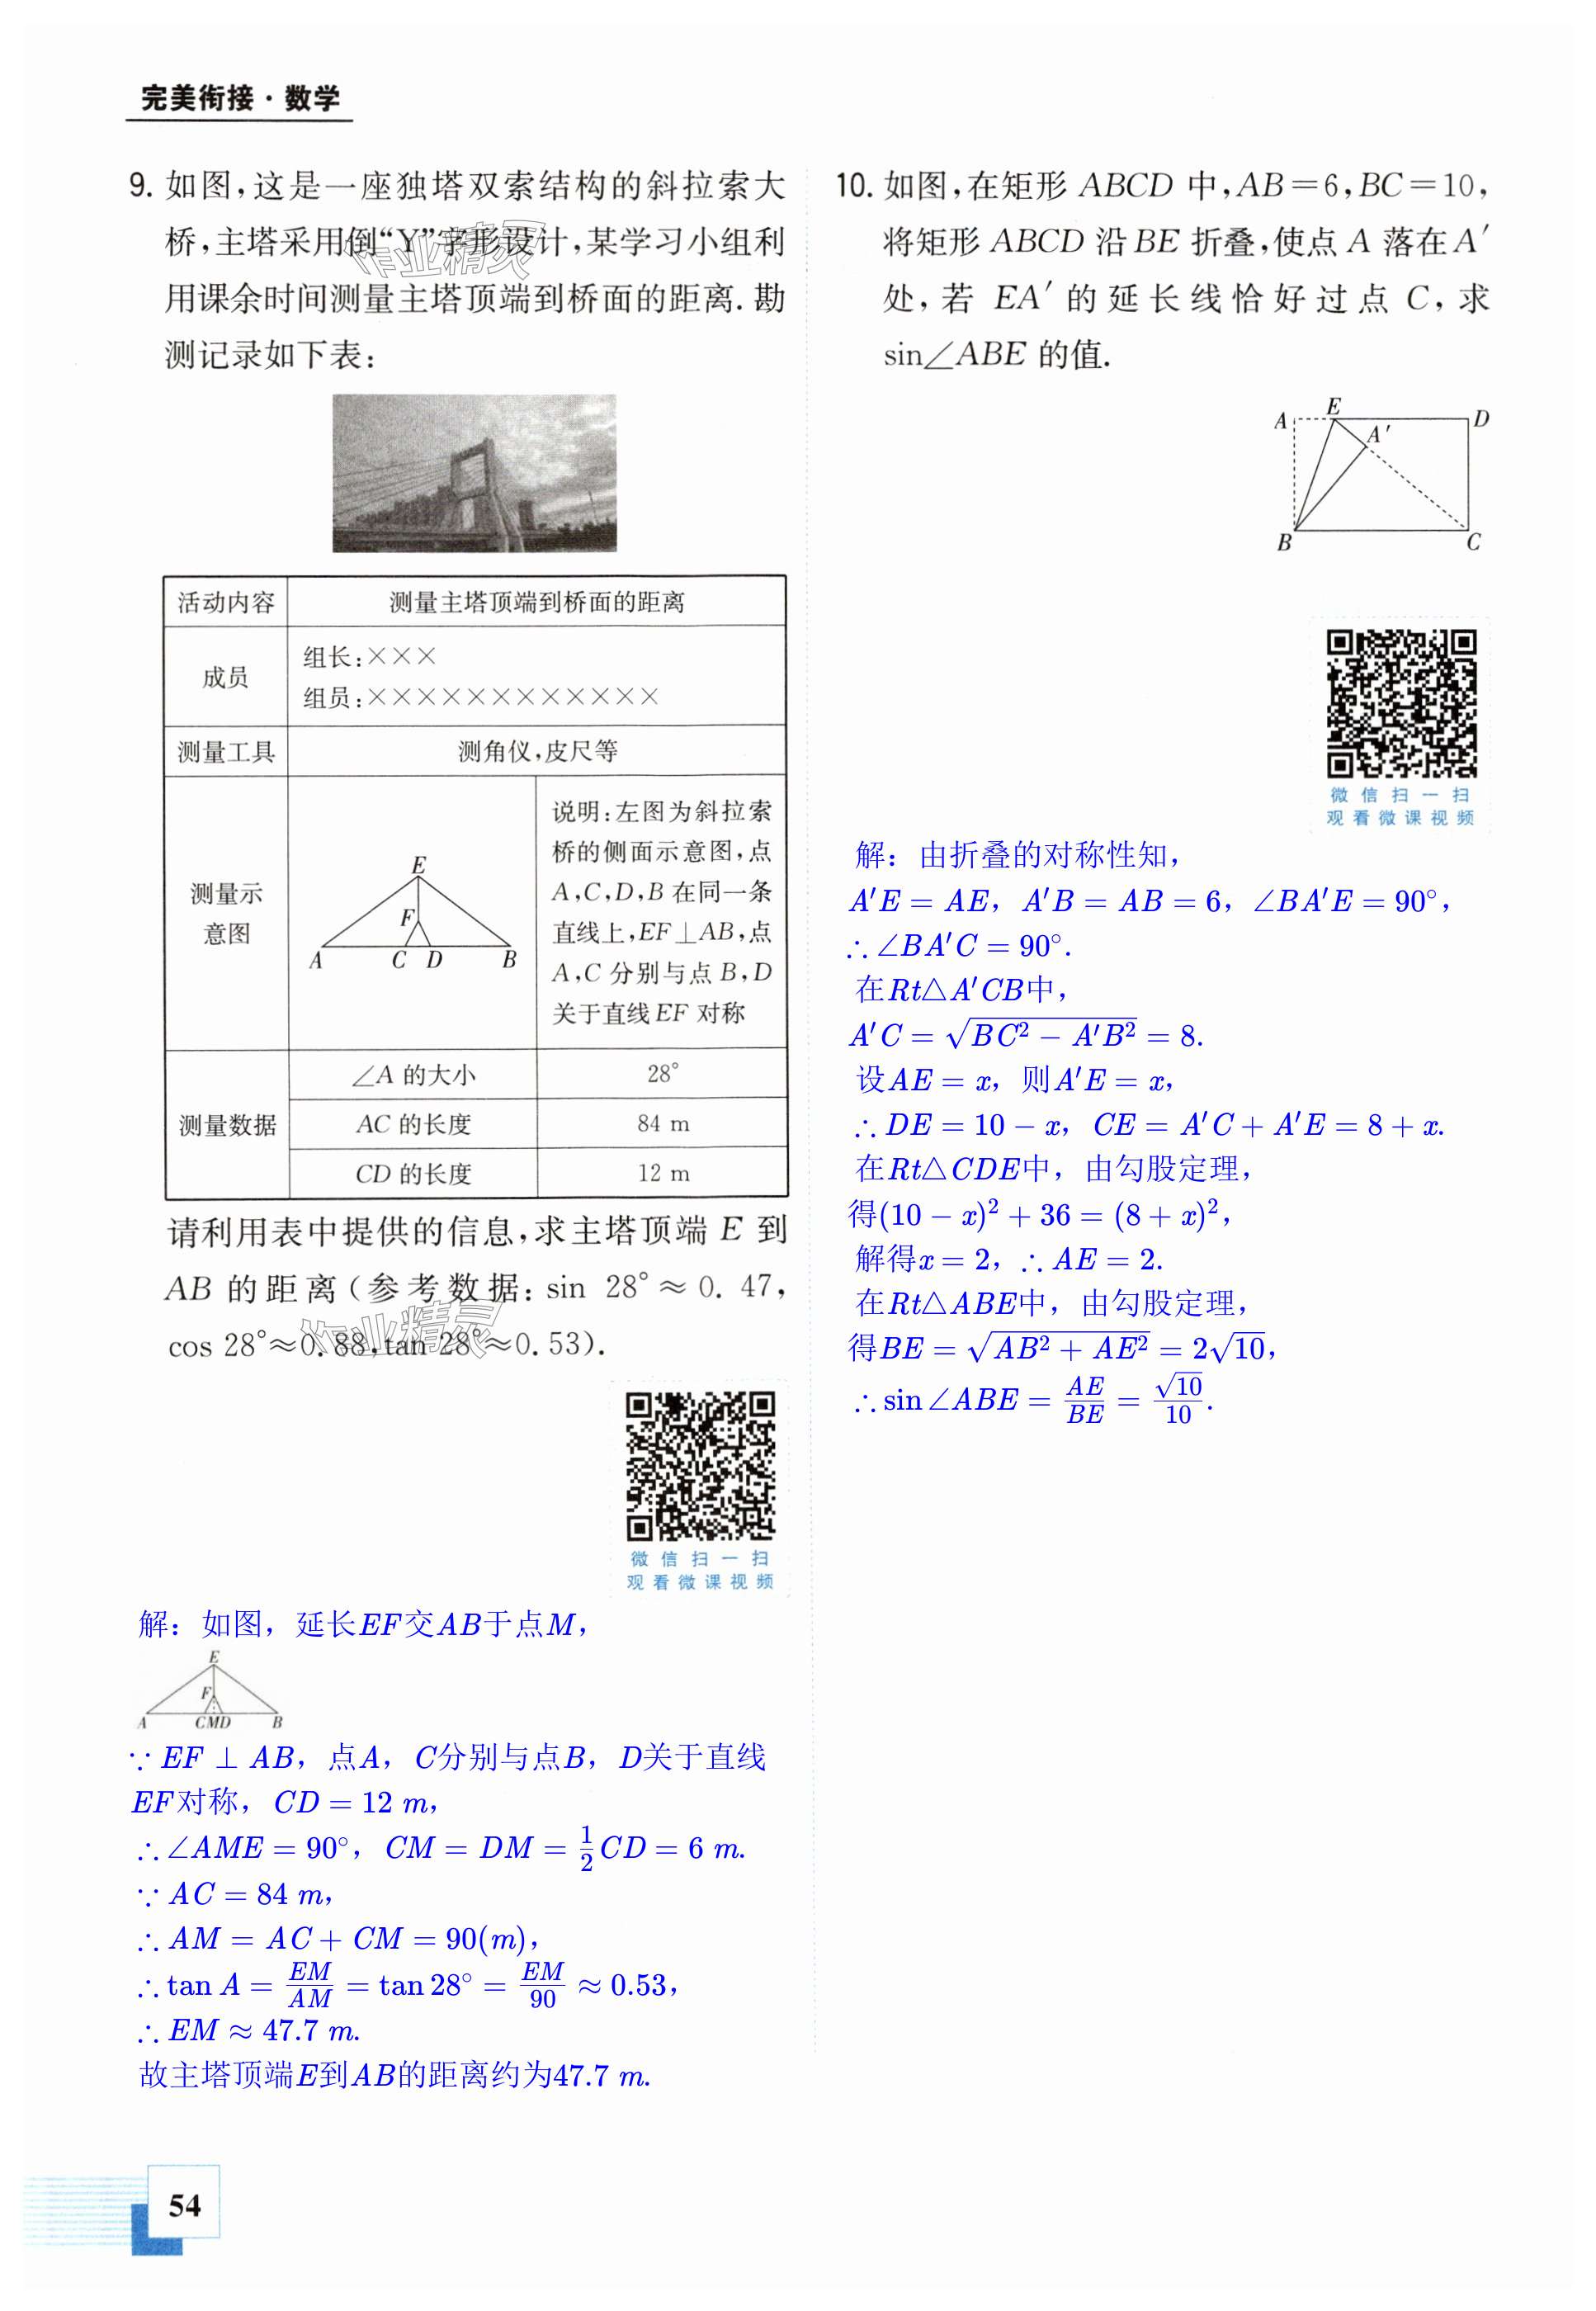 完美衔接·数学
9. 如图,这是一座独塔双索结构的斜拉索大
桥,主塔采用倒“Y”字形设计,某学习小组利
用课余时间测量主塔顶端到桥面的距离. 勘
测记录如下表:
活动内容 测量主塔顶端到桥面的距离
成员
组长:×××
组员:××××××××××××
测量工具 测角仪,皮尺等
测量示
意图
E
F
A C D B
说明:左图为斜拉索
桥的侧面示意图,点
A,C,D,B 在同一条
直线上,EF⊥AB,点
A,C 分别与点 B,D
关于直线 EF 对称
测量数据
∠A 的大小 28°
AC 的长度 84 m
CD 的长度 12 m
请利用表中提供的信息,求主塔顶端 E 到
AB 的距离(参考数据: sin 28°≈0. 47,
cos 28°≈0. 88,tan 28°≈0. 53).
作业精灵
作业精灵
微信扫一扫
观看微课视频
解：如图，延长EF交AB于点M，
E
F
A CMD B
∵ EF ⊥ AB，点A，C分别与点B，D关于直线
EF对称，CD = 12 m，
∴ ∠AME = 90°，CM = DM = 1/2 CD = 6 m.
∵ AC = 84 m，
∴ AM = AC + CM = 90(m)，
∴ tan A = EM/AM = tan 28° = EM/90 ≈ 0.53，
∴ EM ≈ 47.7 m.
故主塔顶端E到AB的距离约为47.7 m.
10. 如图,在矩形 ABCD 中,AB=6,BC=10,
将矩形 ABCD 沿 BE 折叠,使点 A 落在 A′
处,若 EA′ 的延长线恰好过点 C,求
sin∠ABE 的值.
A E D
A′
B C
微信扫一扫
观看微课视频
解：由折叠的对称性知，
A′E = AE，A′B = AB = 6，∠BA′E = 90°，
∴ ∠BA′C = 90°.
在Rt△A′CB中，
A′C = √(BC² − A′B²) = 8.
设AE = x，则A′E = x，
∴ DE = 10 − x，CE = A′C + A′E = 8 + x.
在Rt△CDE中，由勾股定理，
得(10 − x)² + 36 = (8 + x)²，
解得x = 2，∴ AE = 2.
在Rt△ABE中，由勾股定理，
得BE = √(AB² + AE²) = 2√10，
∴ sin ∠ABE = AE/BE = √10/10.
54